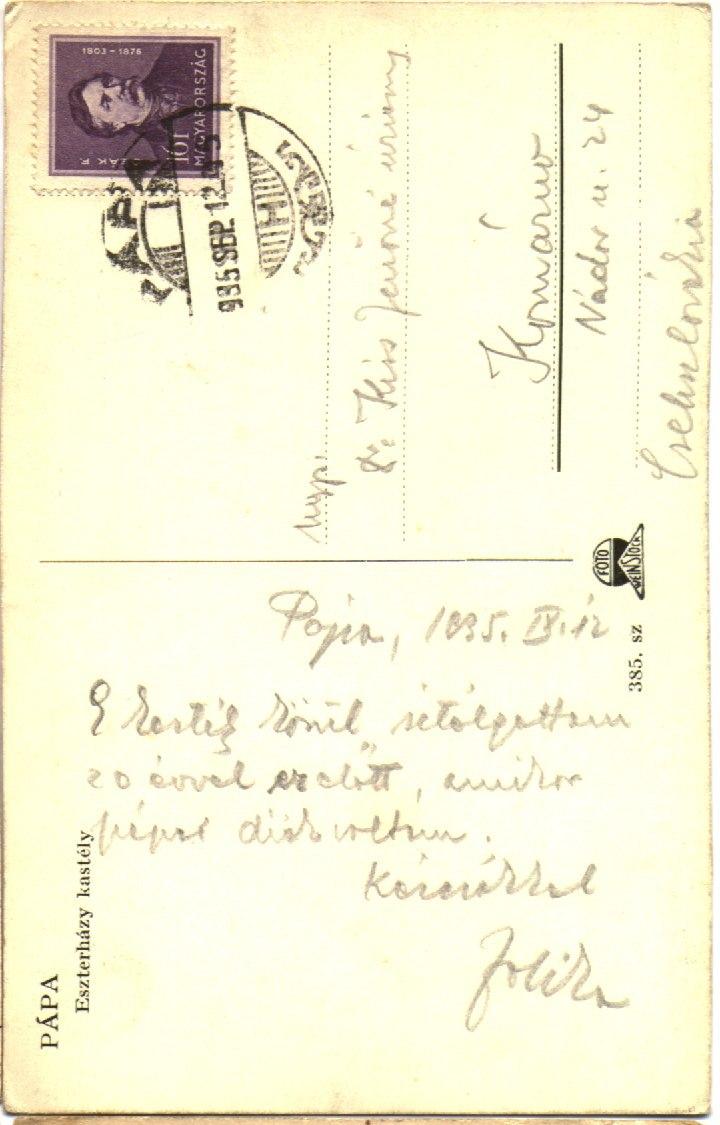 1803-1876
DEÁK F.
10f
MAGYARORSZÁG
PÁPA
935 SEP. 12
Dr. Kiss Jenőné úriasszony
Komárno
Nádor u. 24
Csehszlovákia
FOTO
WEINSTOCK
385. sz
Pápa, 1935. IX. 12
E kastély körül sétálgattam
20 évvel ezelőtt, amikor
pápai diák voltam.
Zolika
PÁPA
Eszterházy kastély